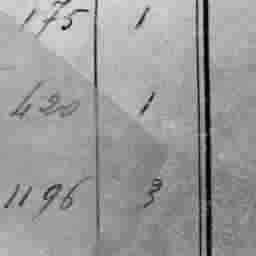 175 1
420 1
1196 3